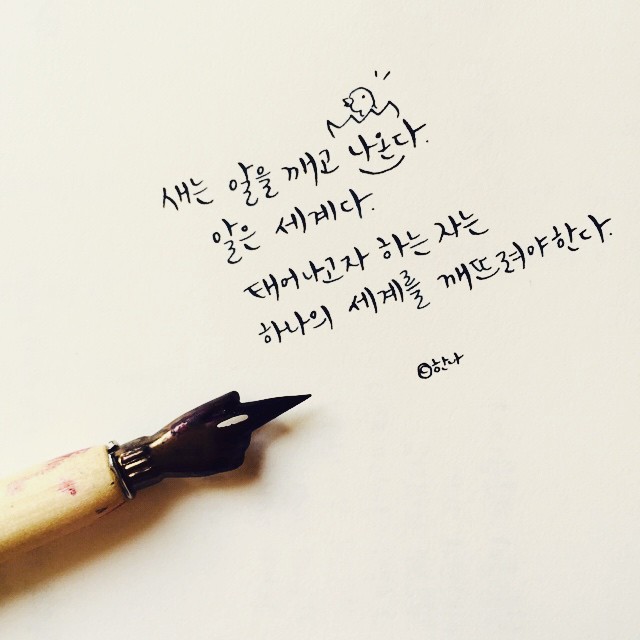 새는 알을 깨고 나온다.
알은 세계다.
태어나고자 하는 자는
하나의 세계를 깨뜨려야한다.
©한나